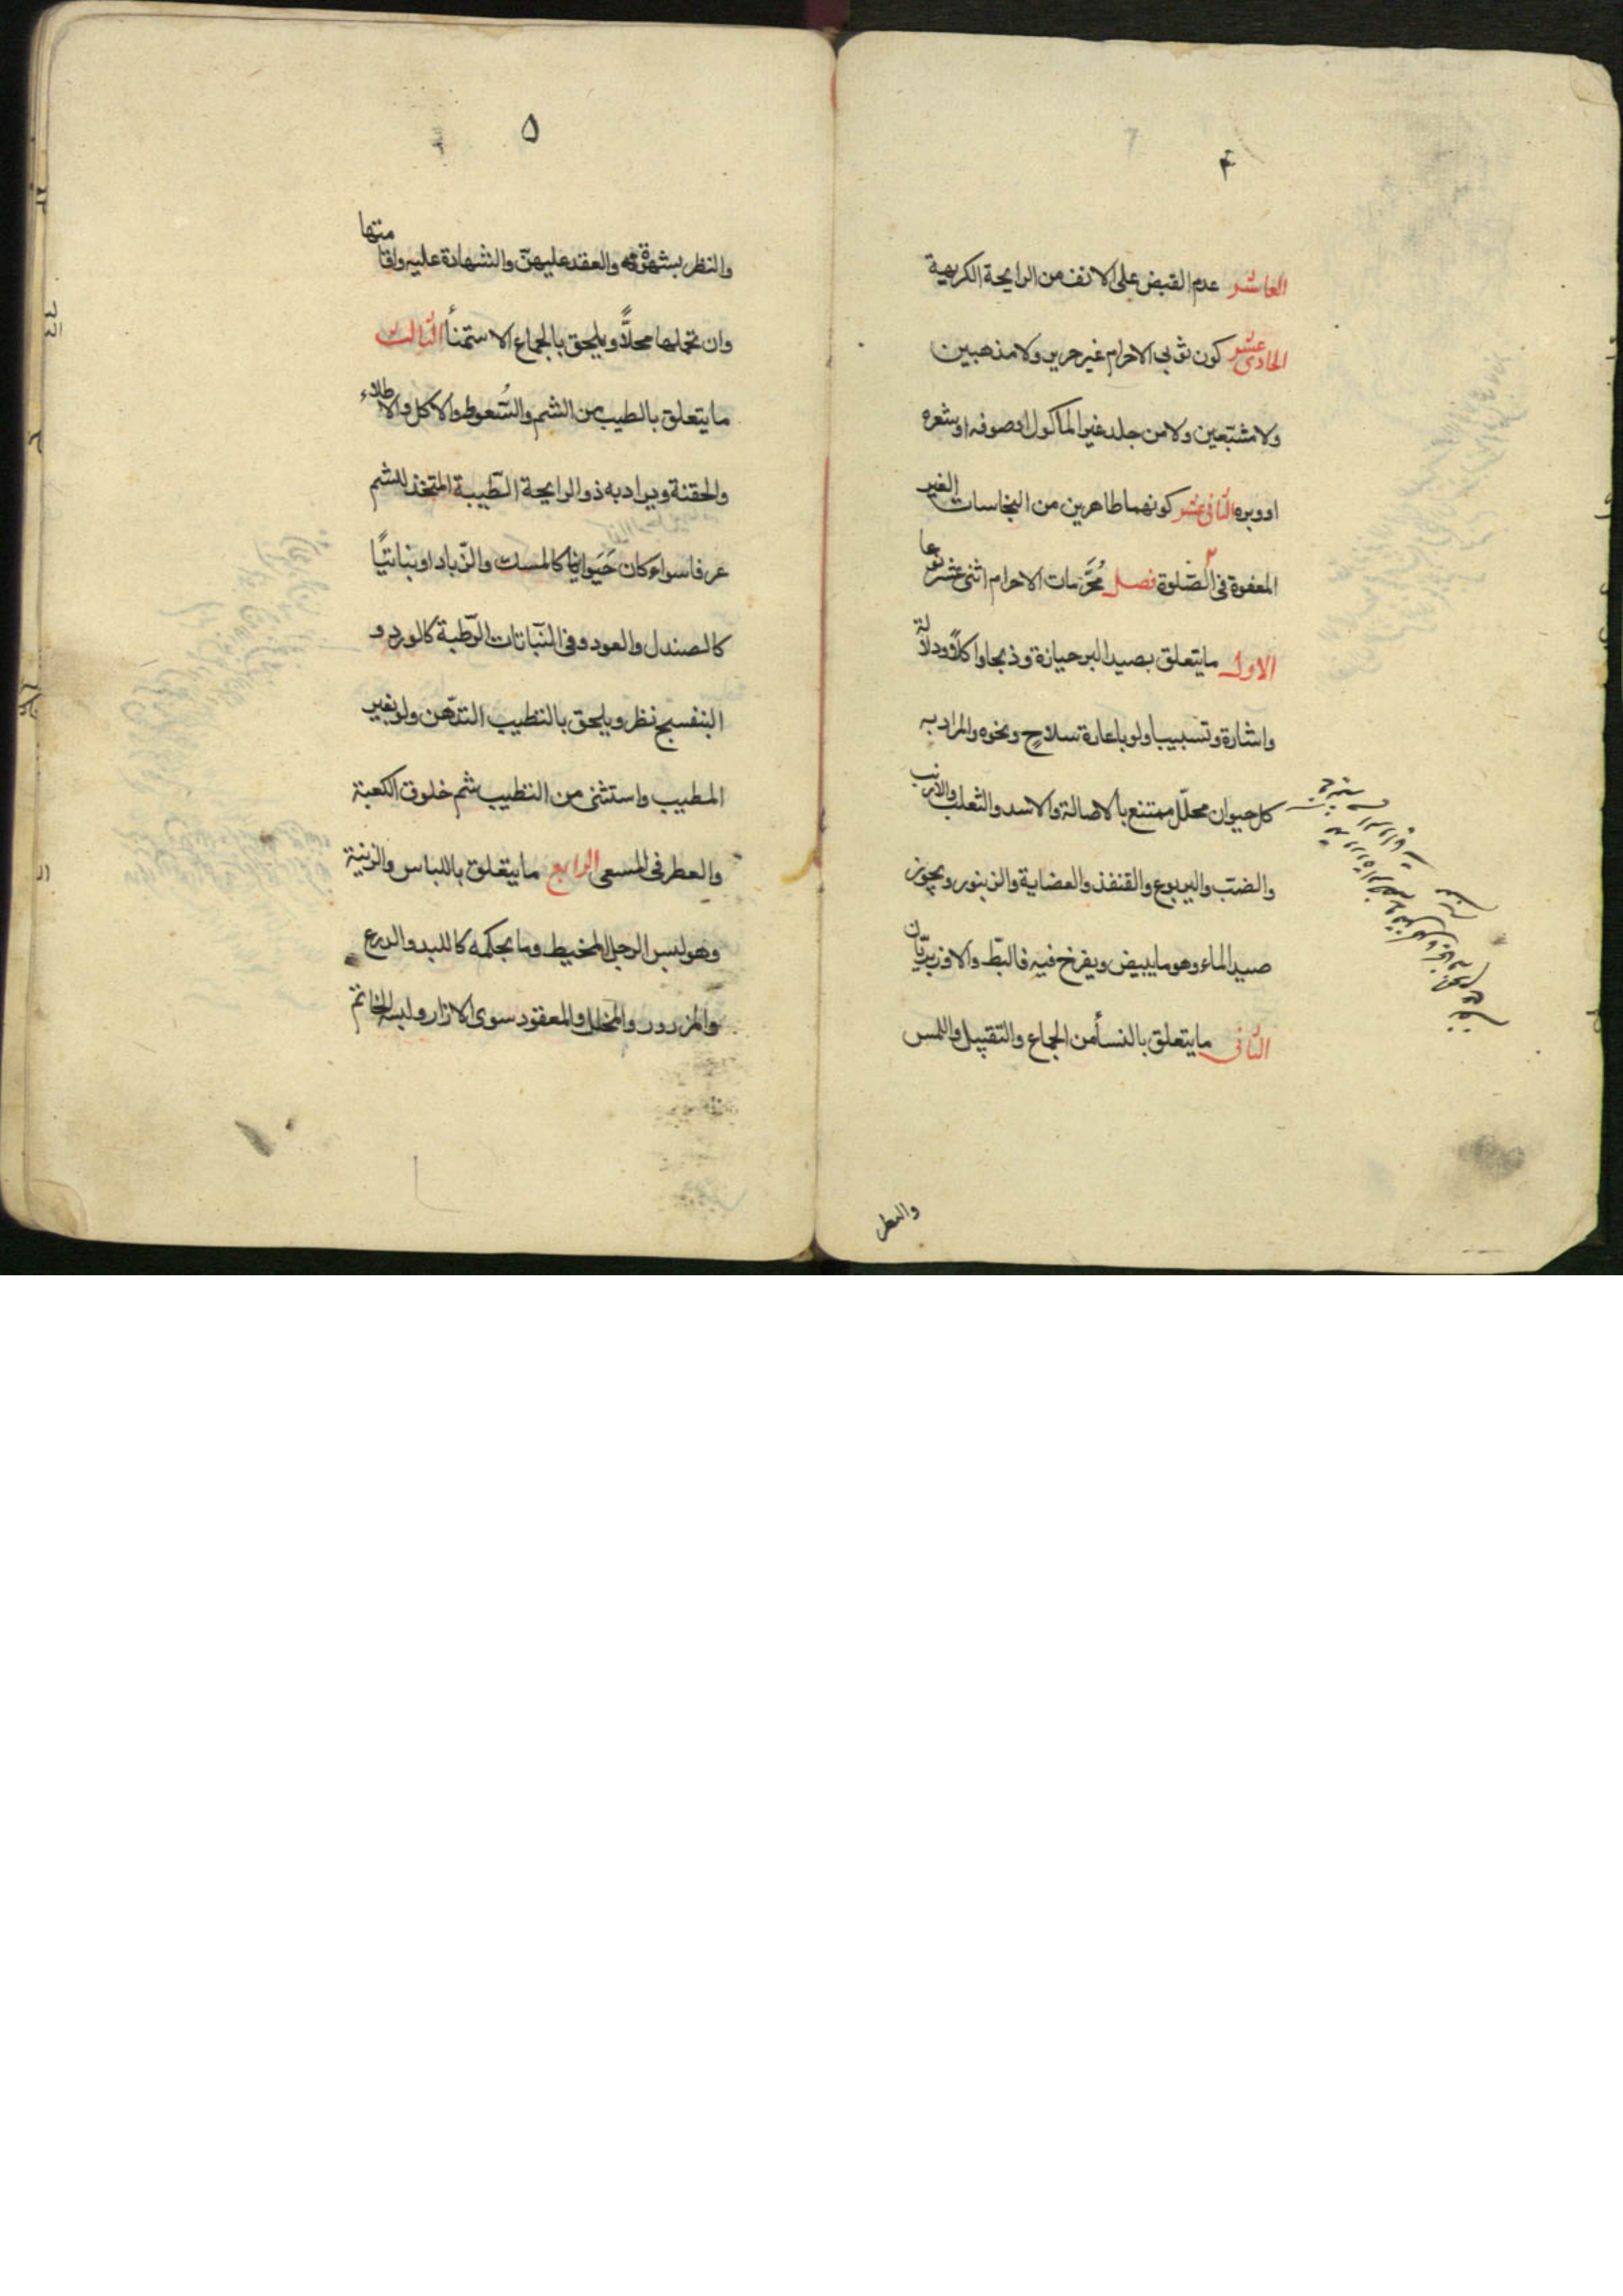 ۴
العاشر عدم القبض على الانف من الرايحة الكريهة
الحادى عشر كون ثوبى الاحرام غير حرير ولا مذهبين
ولا مشبّعين ولا من جلد غير المأكول اوصوفه اوشعره
اووبره الثانى عشر كونهما طاهرين من النجاسات الغير
المعفوة فى الصّلوة فصل مُحَرَّمات الاحرام اثنى عشر نوعا
الاول ما يتعلق بصيد البر حيازة وذبحا واكلاً ودلالة
واشارة وتسبيبا ولو باعارة سلاحٍ ونحوه والمراد به
كل حيوان محلّل ممتنع بالاصالة والاسد والثعلب والارنب
والضب واليربوع والقنفذ والعضاية والزنبور ويجوز
صيد الماء وهو ما يبيض ويفرخ فيه فالبطّ والاوز بريّان
الثانى ما يتعلق بالنسأ من الجماع والتقبيل واللمس
والنظر
۵
والنظر بشهوة والعقد عليهنّ والشهادة عليه واقامتها
وان تحملها محلاًّ ويلحق بالجماع الاستمنأ الثالث
ما يتعلق بالطيب من الشم والسُّعوط والاكل والاطلاء
والحقنة ويراد به ذو الرايحة الطّيبة المتخذ للشم
عرفا سواء كان حَيَوانيّا كالمسك والزّباد او نباتيًّا
كالصندل والعود وفى النّباتات الرّطبة كالورد و
البنفسج نظر ويلحق بالتطيب التدّهن ولو بغير
المطيب واستثنى من التطيب شم خلوق الكعبة
والعطر فى المسعى الرابع ما يتعلق باللباس والزينة
وهو لبس الرجل المخيط وما بحكمه كاللبد والدرع
والمزرور والمخلل والمعقود سوى الازار ولبسه الخاتم